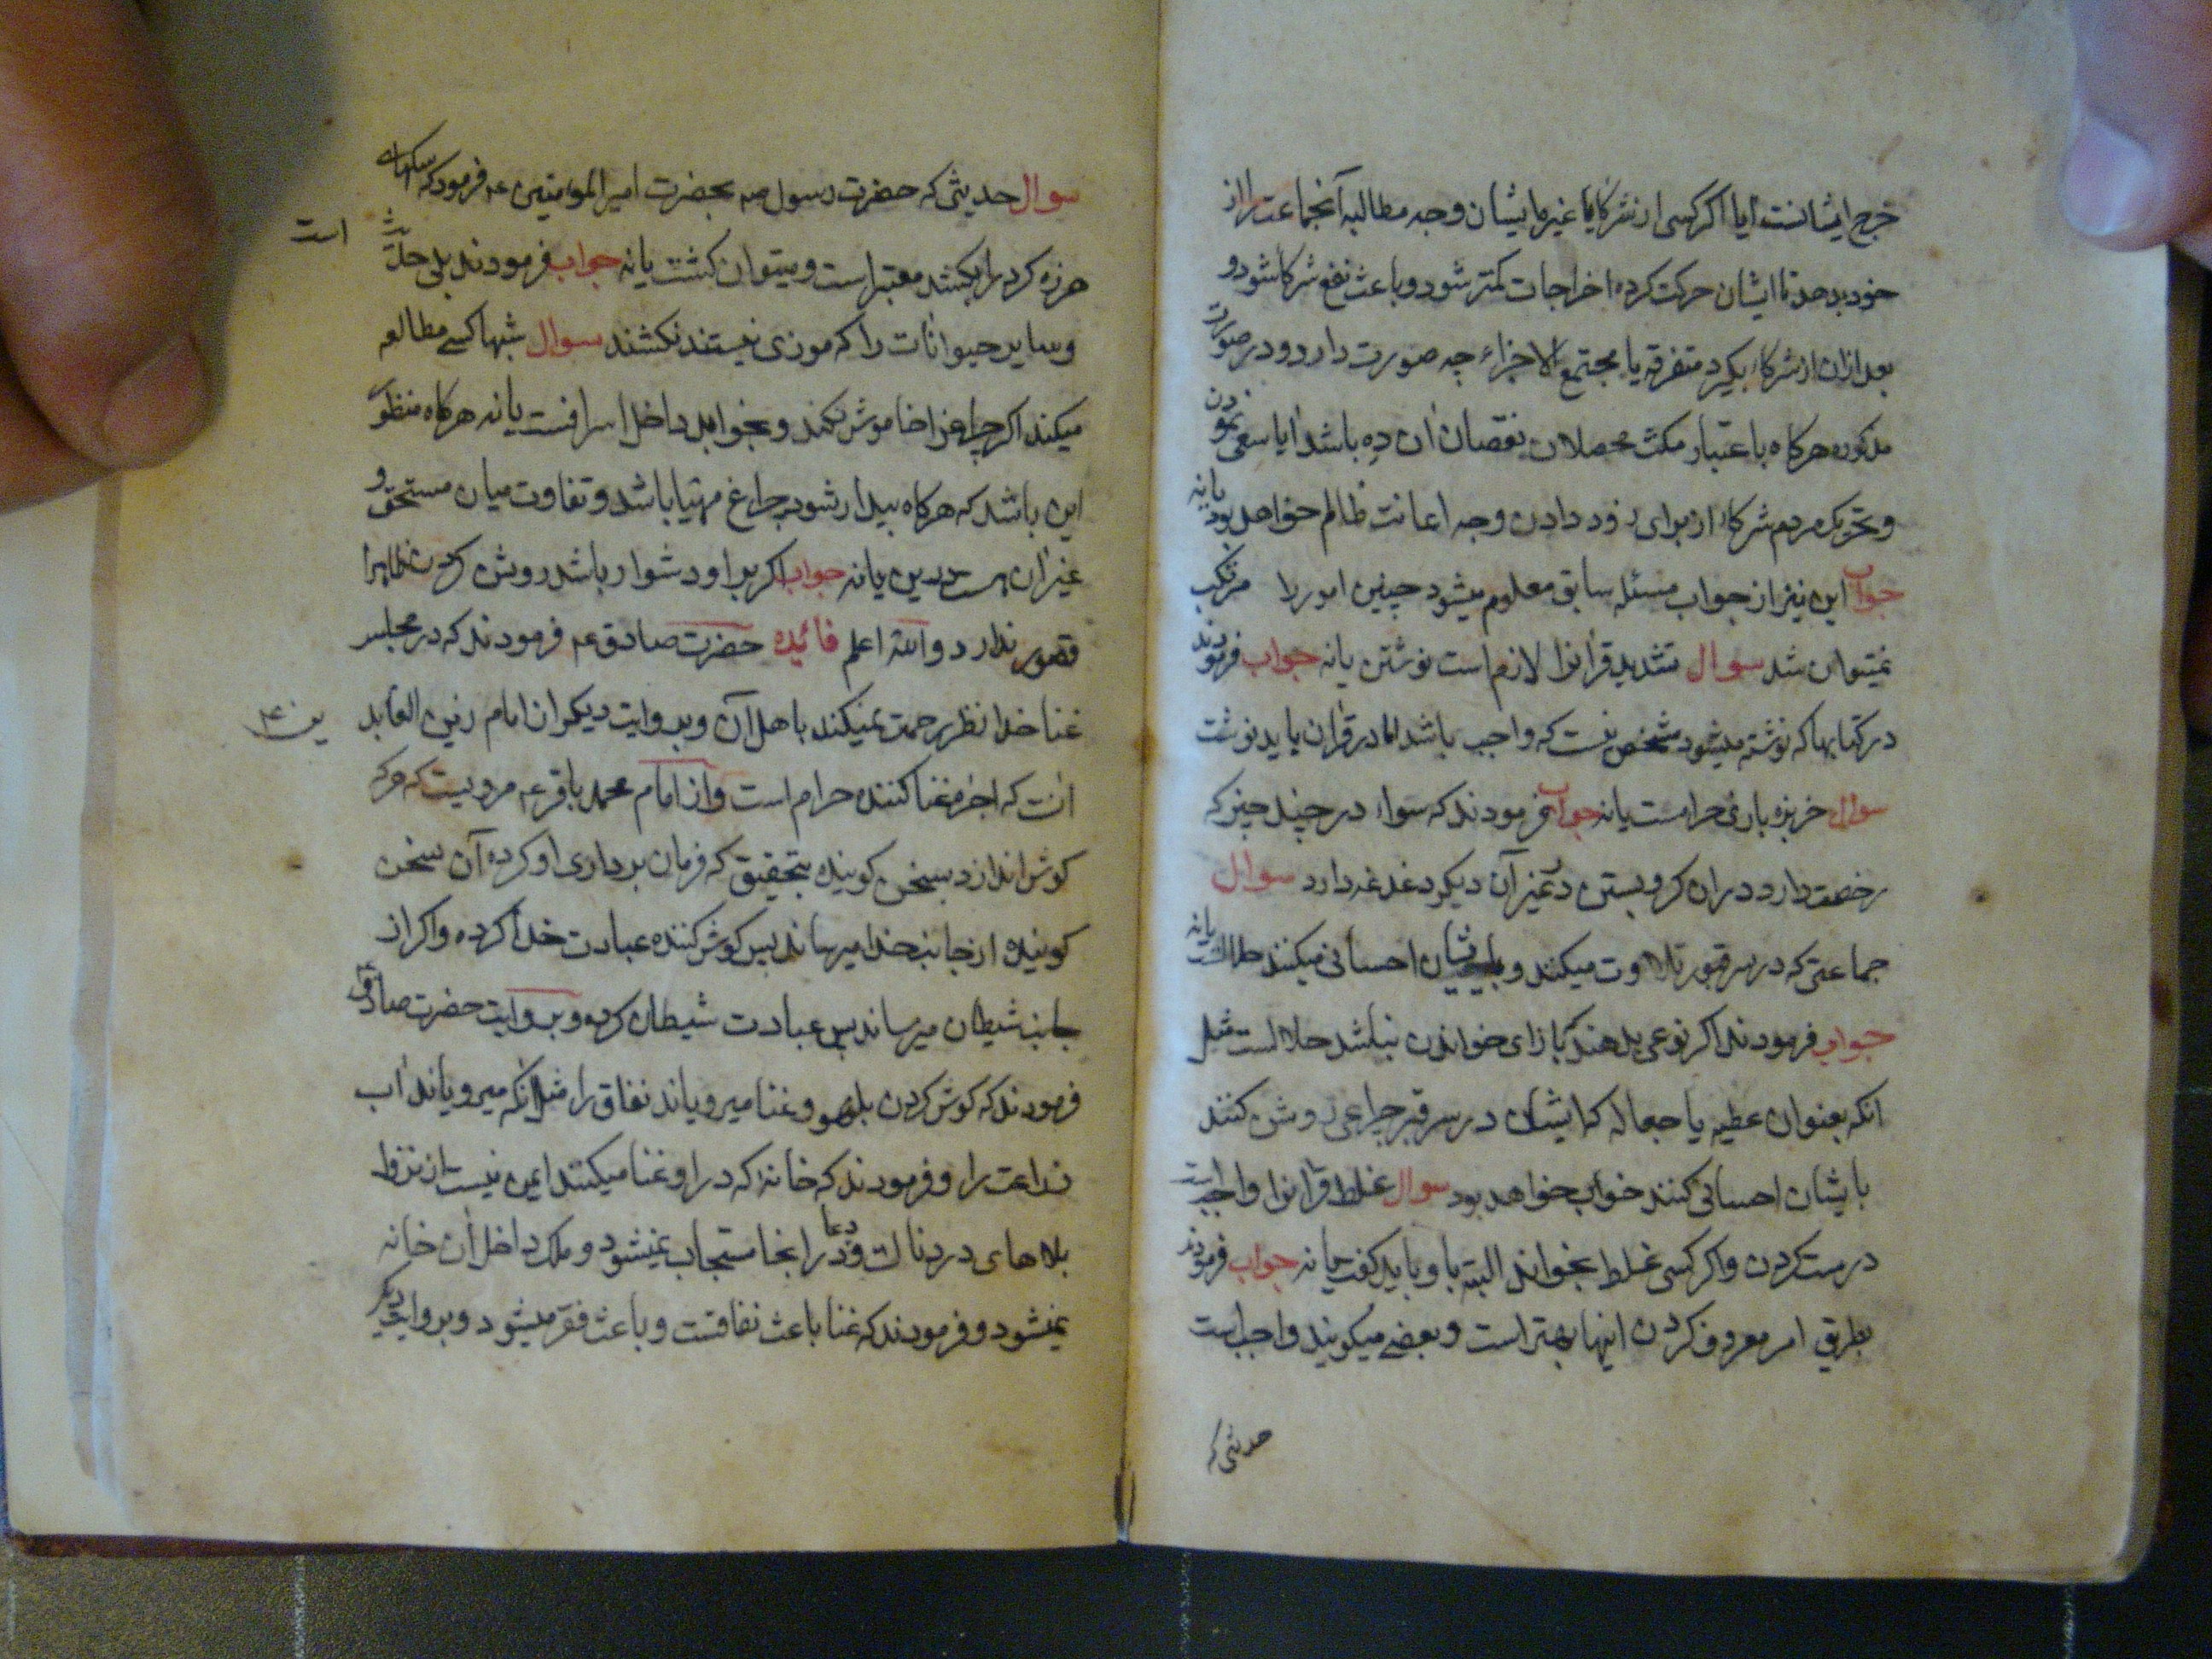 خرج ایشانست ایا اکر کسی از شرکا یا غیر ایشان وجه مطالبه آنجماعت را از
خود بدهد تا ایشان حرکت کرده اخراجات کمتر شود و باعث نفع شرکا شود و
بعد ازان از شرکاء بکیرد متفرقه یا مجتمع الاجزاء چه صورت دارد و در صورت
مذکوره هرکاه باعتبار مکث محصلان نقصان ان ده باشد ایا سعی نمودن
و تحریک مردم شرکاء از برای زود دادن وجه اعانت ظالم خواهد بود یا نه
جواب این نیز از جواب مسئله سابق معلوم میشود چنین امور را مرتکب
نمیتوان شد سوال تشدید قرانرا لازم است نوشتن یا نه جواب فرمودند
در کتابها که نوشته میشود مشخص نیست که واجب باشد اما در قران باید نوشت
سوال خربزه بازی حرامست یا نه جواب فرمودند که سواء در چند چیز که
رخصت دارد دران کرو بستن در غیر آن دیکر دغدغه دارد سوال
جماعتی که در سر قبور تلاوت میکنند و بایشان احسانی میکنند حلالست یا نه
جواب فرمودند اکر نوعی بدهند که بازای خواندن نباشد حلال است مثل
انکه بعنوان عطیه یا جعاله که ایشان در سر قبر چراغی روشن کنند
بایشان احسانی کنند خوب خواهد بود سوال غلط قرانرا واجب است
درست کردن و اکر کسی غلط بخواند البته باو باید کفت یا نه جواب فرمودند
بطریق امر معروف کردن اینها بهتر است و بعضی میکویند واجب است
حدیثی که
سوال حدیثی که حضرت رسول صه بحضرت امیر المومنین ع فرمود که سکهای
هرزه کرد را بکشد معتبر است و میتوان کشت یا نه جواب فرمودند بلی حدیث است
و سایر حیوانات را که موذی نیستند نکشند سوال شبها کسی مطالعه
میکند اکر چراغرا خاموش نکند و بخوابد داخل اسرافست یا نه هرکاه منظور
این باشد که هرکاه بیدار شود چراغ مهیا باشد و تفاوت میان مستحق و
غیر ان هست درین یا نه جواب اکر بر او دشوار باشد روشن کردن ظاهرا
قصور ندارد والله اعلم فائیده حضرت صادق ع فرمودند که در مجلس
غنا خدا نظر رحمت نمیکند باهل آن و بروایت دیکر از امام زین العابدین ع
انست که اجره غنا کننده حرام است و از امام محمد باقر ع مرویست که هر که
کوش اندازد بسخن کوینده بتحقیق که فرمان برداری او کرده آن سخن
کوینده از جانب خدا میرساند پس کوش کننده عبادت خدا کرده و اکر از
جانب شیطان میرساند پس عبادت شیطان کرده و بروایت حضرت صادق ع
فرمودند که کوش کردن بلهو و غنا میرویاند نفاق را مثل انکه میرویاند اب
زراعت را و فرمودند که خانه که در او غنا میکنند ایمن نیست از نزول
بلاهای دردناک و دعا در انجا مستجاب نمیشود و ملک داخل ان خانه
نمیشود و فرمودند که غنا باعث نفاقست و باعث فقر میشود و بروایت دیکر